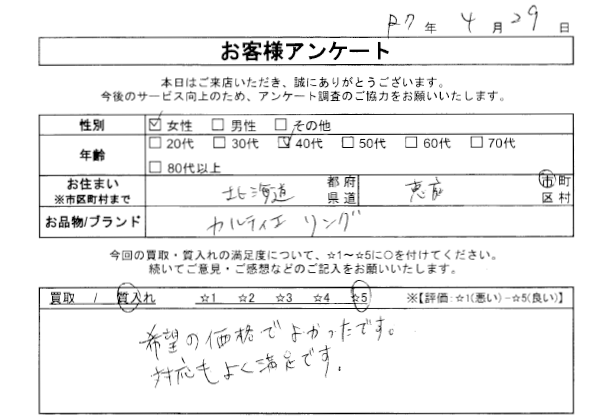 R7年 4月29日
お客様アンケート
本日はご来店いただき、誠にありがとうございます。
今後のサービス向上のため、アンケート調査のご協力をお願いいたします。
性別 ☑女性 □男性 □その他
年齢 □20代 □30代 ☑40代 □50代 □60代 □70代
□80代以上
お住まい ※市区町村まで 北海道 都府県道 恵庭 市町区村
お品物/ブランド カルティエ リング
今回の買取・質入れの満足度について、☆1〜☆5に○を付けてください。
続いてご意見・ご感想などのご記入をお願いいたします。
買取 / 質入れ ☆1 ☆2 ☆3 ☆4 ☆5 ※【評価:☆1(悪い)−☆5(良い)】
希望の価格でよかったです。
対応もよく満足です。